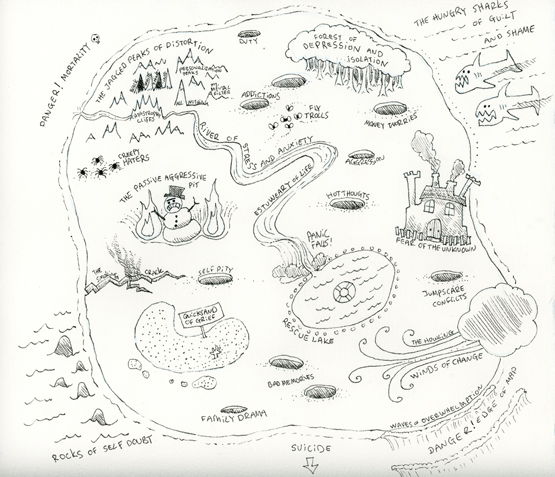 DANGER! MORTALITY
THE JAGGED PEAKS OF DISTORTION
PERSONALIZATION
PEAKS
MENTAL
FILTER
CATASTROPHE
CLIFFS
DUTY
FOREST OF
DEPRESSION AND
ISOLATION
THE HUNGRY SHARKS
OF GUILT
AND SHAME
ADDICTIONS
FLY
TROLLS
MONEY WORRIES
RIVER OF STRESS AND ANXIETY
CREEPY
HATERS
THE PASSIVE AGGRESSIVE
PIT
ESTUWEARY OF LIFE
HOT THOUGTS
FEAR OF THE UNKNOWN
PANIC
FALLS!
THE
CRACK
SELF PITY
JUMPSCARE
CONFLICTS
QUICKSAND
OF GRIEF
RESCUE LAKE
THE HOWLING
WINDS OF CHANGE
BAD MEMORIES
FAMILY DRAMA
WAVES OF OVERWHELMPTION
DANGER! EDGE OF MAP
ROCKS OF SELF DOUBT
SUICIDE